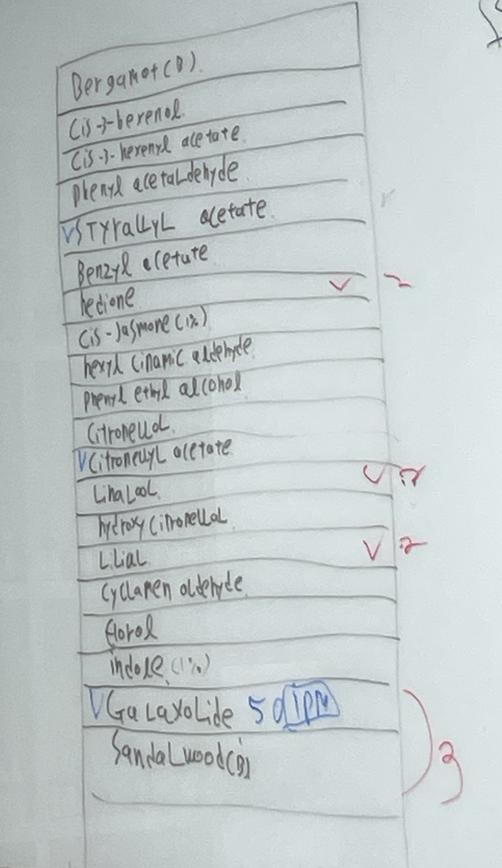 Bergamot(B)
Cis-3-herenol
Cis-3-herenyl acetate
Phenyl acetaldehyde
V STyrallyl acetate
Benzyl acetate
hedione V 2
Cis-Jasmone (1%)
hexyl cinamic aldehyde
Phenyl ethyl alcohol
Citronellol
V Citronellyl acetate
Linalool V 2
hydroxy citronellol
Lilial V 2
Cyclamen aldehyde
florol
indole (1%)
V Galaxolide 50 IPM
Sandalwood(B) 3